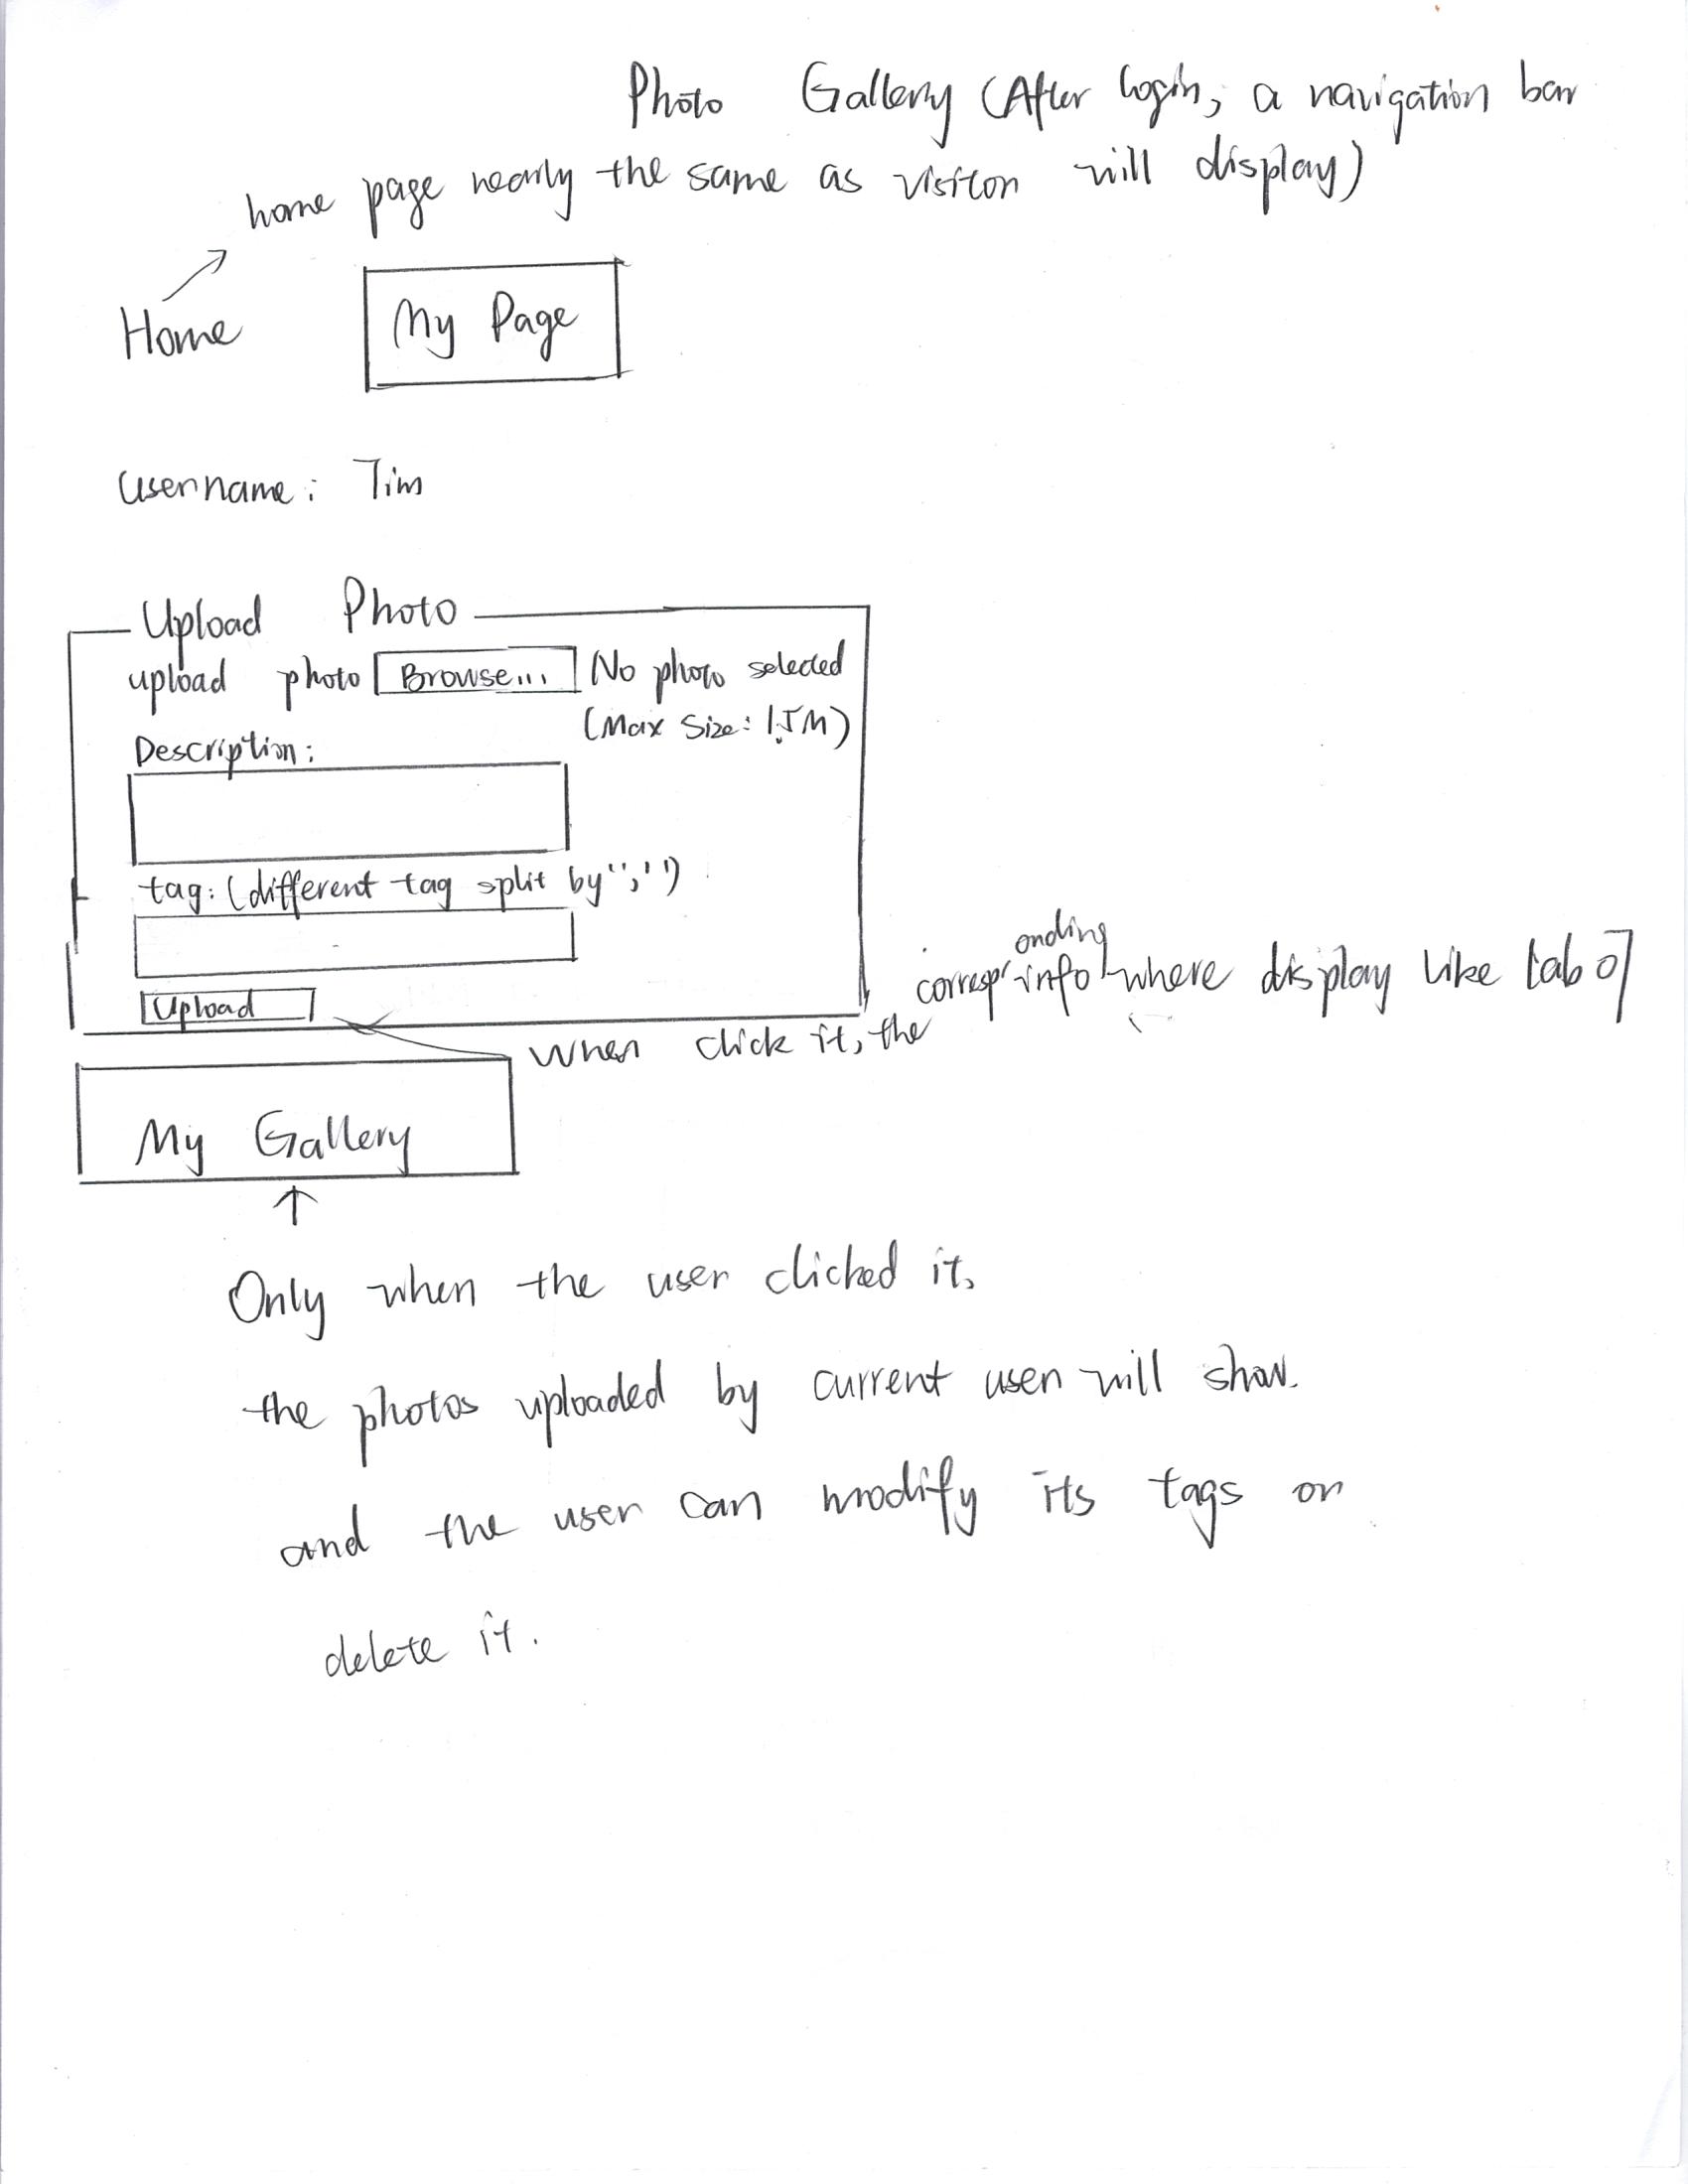 Photo Gallery (After login, a navigation bar
will display)
home page nearly the same as visitor
Home
My Page
Username: Tim
Upload Photo
upload photo Browse... No photo selected
(Max Size: 1.5M)
Description:
tag: (different tag split by ",")
Upload
When click it, the corresponding info where display like lab 07
My Gallery
Only when the user clicked it,
the photos uploaded by current user will show.
and the user can modify its tags or
delete it.